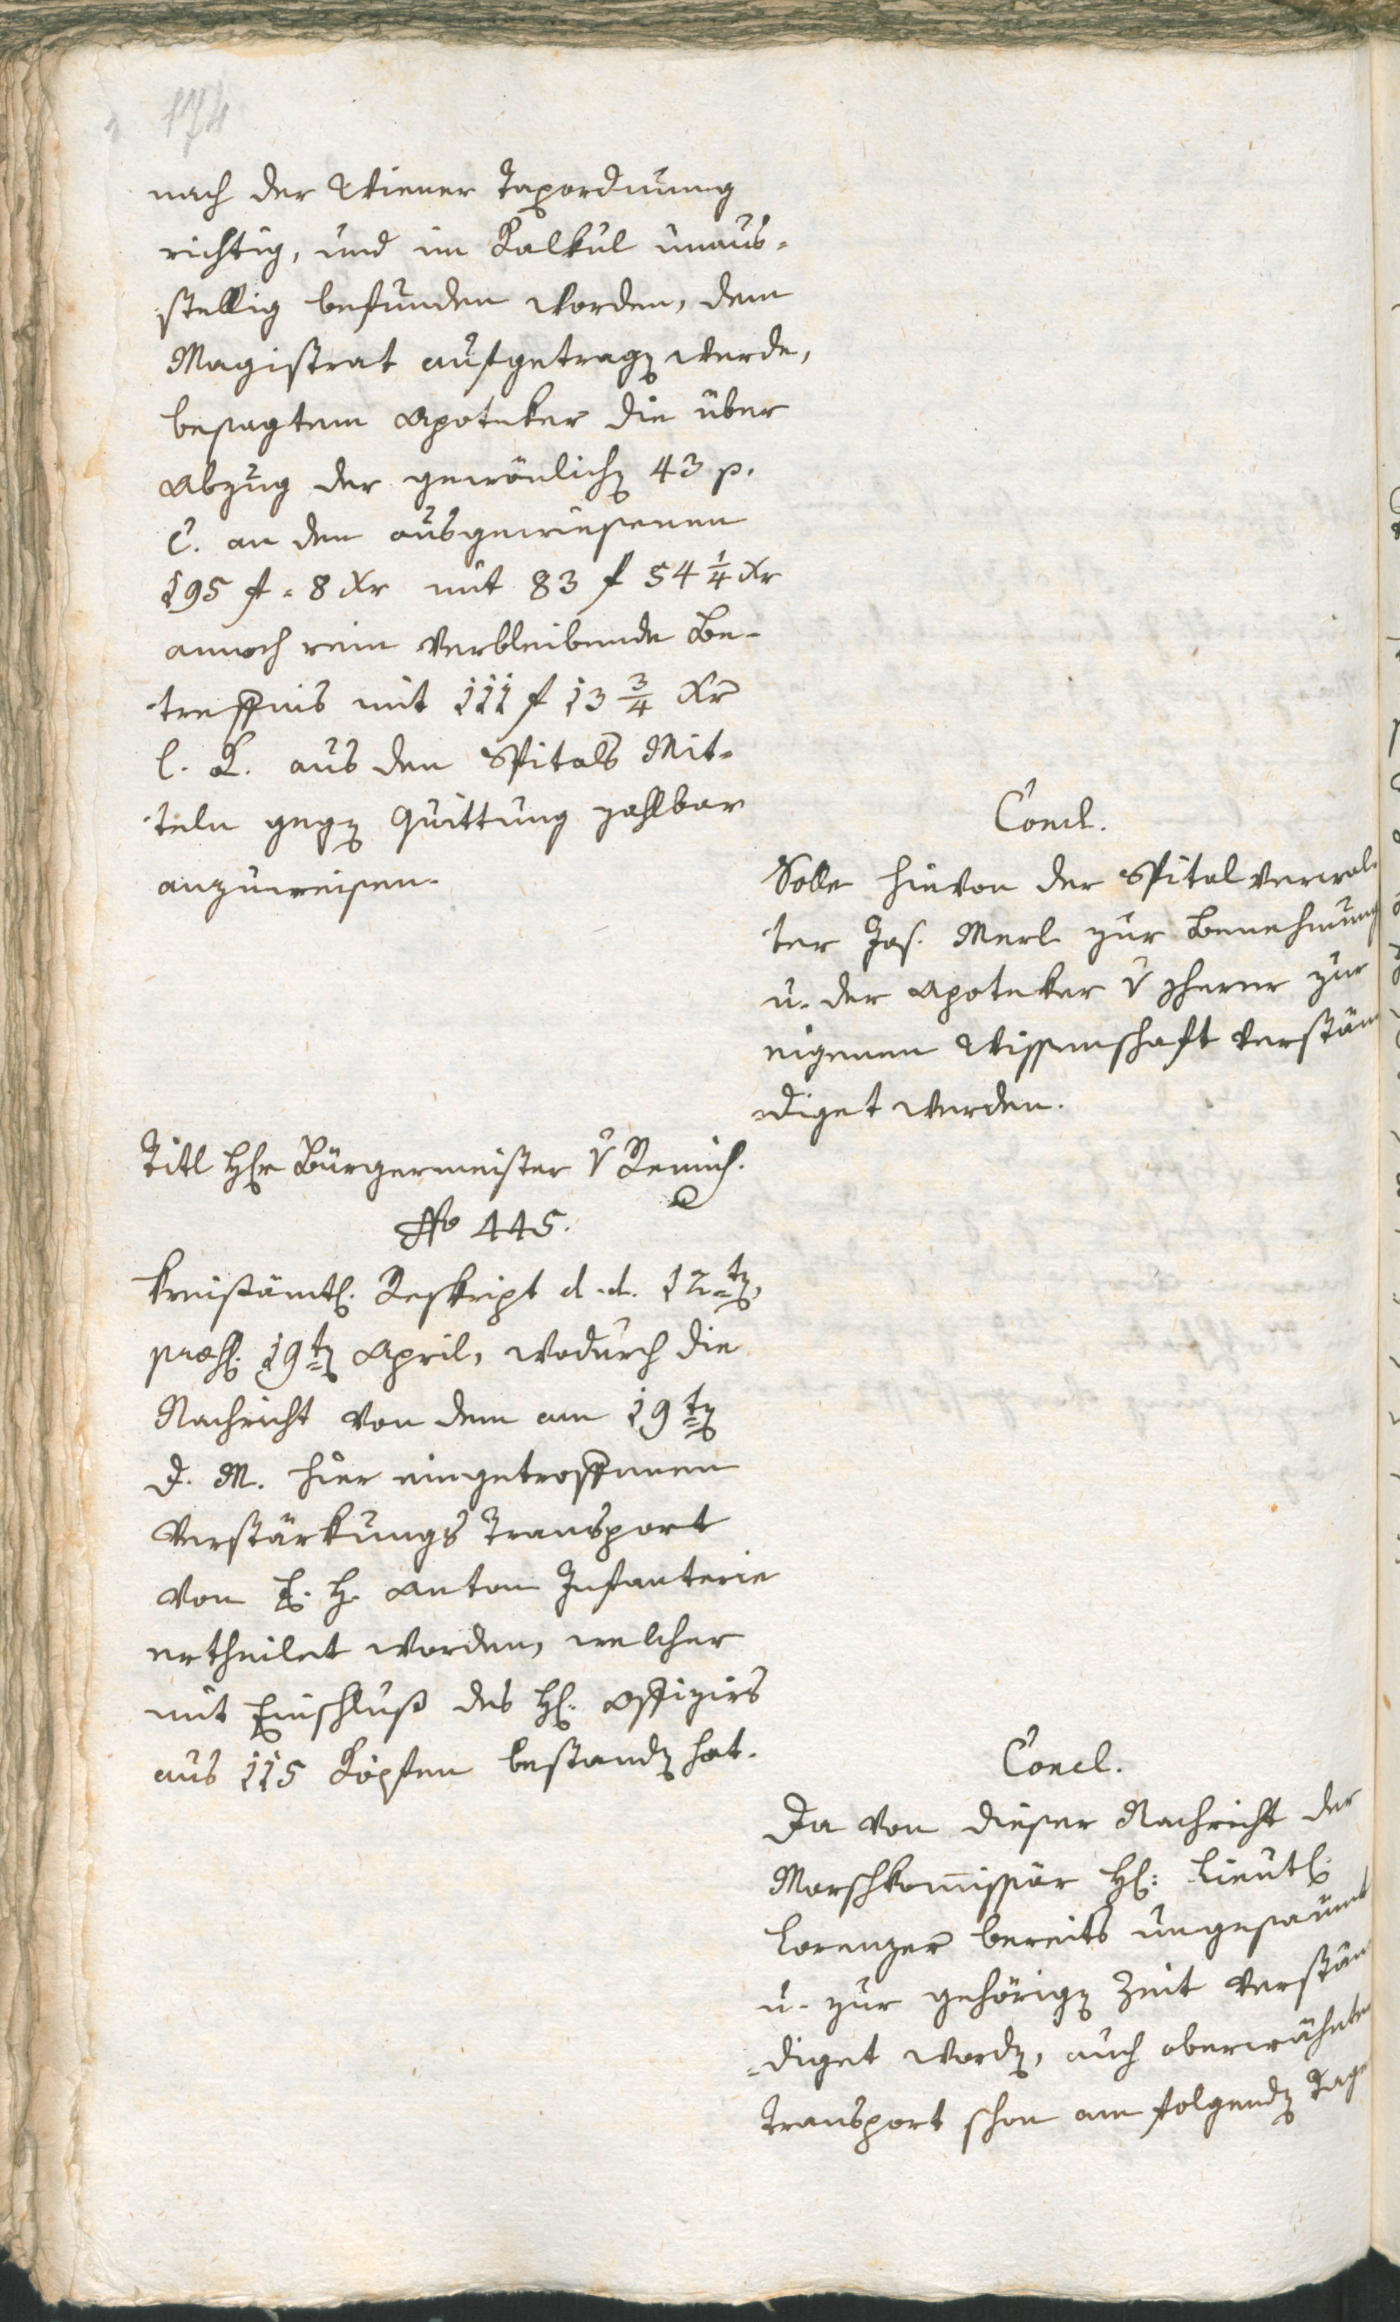 174
nach der Wiener Taxordnung
richtig, und im Kalkul unaus-
stellig befunden worden, dem
Magistrat aufgetragen werde,
besagtem Apoteker die über
Abzug der gewönlichen 43 p.
C. an den ausgewiesenen
195 f = 8 Xr mit 83 f 54 1/4 Xr
annoch rein verbleibende Be-
treffnis mit 111 f 13 3/4 Xr
C. L. aus den Spitals Mit-
teln gegen Quittung zahlbar
anzuweisen.
Concl.
Solle hievon der Spitalverwal-
ter Jos. Merl zur Benehmung
u. der Apoteker v zur
eigenen Wissenschaft verstän
diget werden.
Titl Hr Bürgermeister v Remich.
No 445.
Kreisämtl. Reskript d. d. 12ten,
praes. 19ten April, wodurch die
Nachricht von dem am 19ten
d. M. hier eingetroffenen
Verstärkungs Transport
von E. H. Anton Infanterie
ertheilet worden, welcher
mit Einschluß des H. Offiziers
aus 115 Köpfen bestanden hat.
Concl.
Da von dieser Nachricht der
Marschkommissär H: Lieut.
Lorenzer bereits ungesaumt
u. zur gehörigen Zeit verstän
=diget worden, auch oberwähnter
Transport schon am folgenden Tage